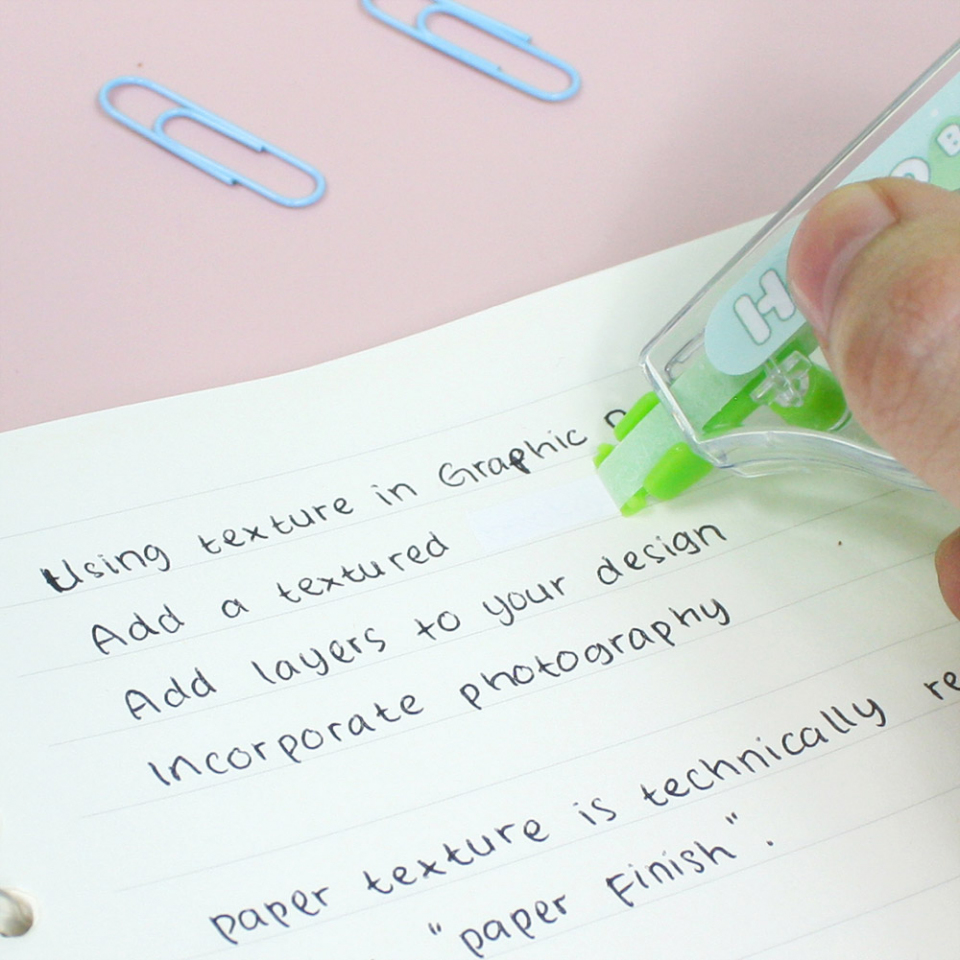 Using texture in Graphic
Add a textured
Add layers to your design
Incorporate photography
paper texture is technically
"paper Finish".
H